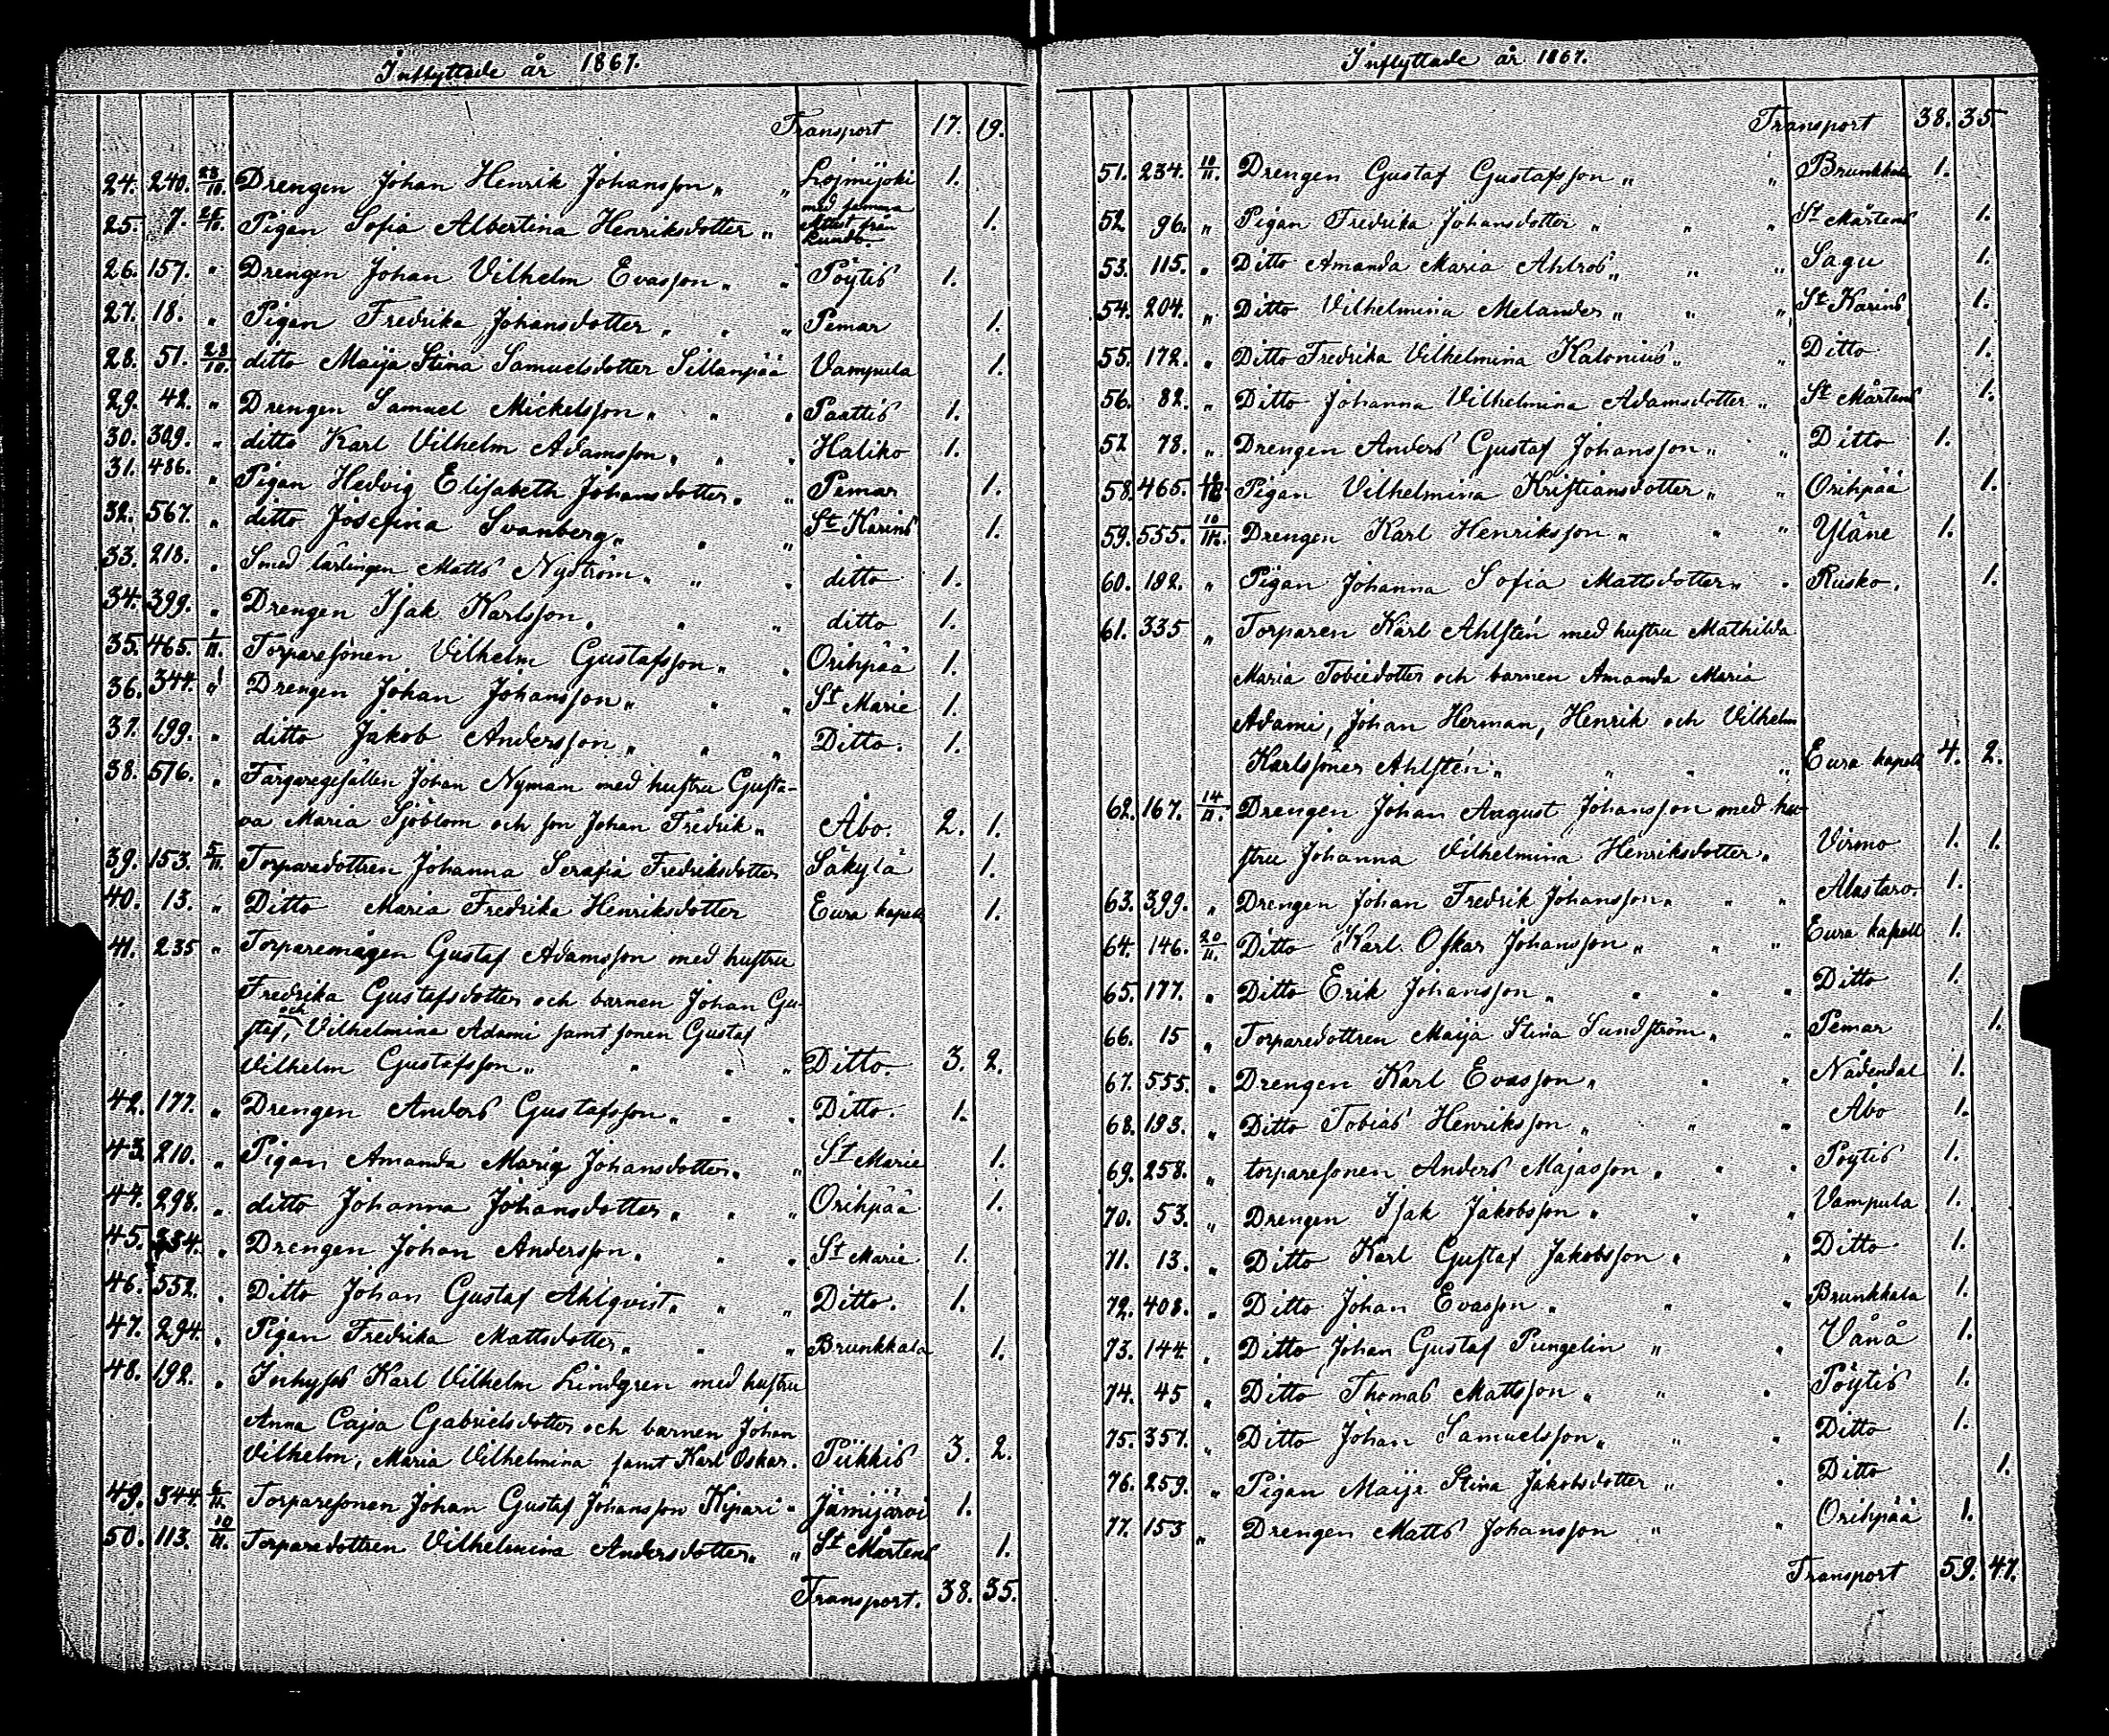 Inflyttade år 1867.
Transport 17. 19.
24. 240. 23/10. Drengen Johan Henrik Johansson „ „ Lojmijoki 1.
25. 7. 25/10. Pigan Sofia Albertina Henriksdotter „ med samma Attest från Kumb. 1.
26. 157. „ Drengen Johan Vilhelm Evasson „ „ Pöytis 1.
27. 18. „ Pigan Fredrika Johansdotter „ „ „ Pemar 1.
28. 51. 28/10. ditto Maija Stina Samuelsdotter Sillanpää Vampula 1.
29. 42. „ Drengen Samuel Mickelsson „ „ „ Paattis 1.
30. 309. „ ditto Karl Vilhelm Adamsson „ „ „ Haliko 1.
31. 486. „ Pigan Hedvig Elisabeth Johansdotter „ „ Pemar 1.
32. 567. „ ditto Josefina Svanberg „ „ „ St Karins 1.
33. 218. „ Smed lärlingen Matts Nyström „ „ „ ditto 1.
34. 399. „ Drengen Isak Karlsson „ „ „ ditto 1.
35. 465. 1/11. Torparesonen Vilhelm Gustafsson „ „ Orihpää 1.
36. 344. „ Drengen Johan Johansson „ „ „ St Marie 1.
37. 199. „ ditto Jakob Andersson „ „ „ Ditto. 1.
38. 576. „ Färgaregesällen Johan Nyman med hustru Gusta-
va Maria Sjöblom och son Johan Fredrik „ Åbo. 2. 1.
39. 153. 5/11. Torparedottren Johanna Serafia Fredriksdotter Säkylä 1.
40. 13. „ Ditto Maria Fredrika Henriksdotter Eura kapell 1.
41. 235 „ Torparemågen Gustaf Adamsson med hustru
Fredrika Gustafsdotter och barnen Johan Gu-
staf, och Vilhelmina Adami samt sonen Gustaf
Vilhelm Gustafsson „ „ „ „ Ditto. 3. 2.
42. 177. „ Drengen Anders Gustafsson „ „ „ Ditto. 1.
43. 210. „ Pigan Amanda Maria Johansdotter „ „ St Marie 1.
44. 298. „ ditto Johanna Johansdotter „ „ „ Orihpää 1.
45. 334. „ Drengen Johan Andersson „ „ „ St Marie 1.
46. 552. „ Ditto Johan Gustaf Ahlqvist „ „ „ Ditto. 1.
47. 294. „ Pigan Fredrika Mattsdotter „ „ „ Brunkkala 1.
48. 192. „ Inhyses Karl Vilhelm Lindgren med hustru
Anna Cajsa Gabrielsdotter och barnen Johan
Vilhelm, Maria Vilhelmina samt Karl Oskar. Piikkis 3. 2.
49. 344. 6/11. Torparesonen Johan Gustaf Johansson Kipari „ Jämijärvi 1.
50. 113. 10/11. Torparedottren Vilhelmina Andersdotter „ „ St Mårtens 1.
Transport. 38. 35.
Inflyttade år 1867.
Transport 38. 35.
51. 234. 10/11. Drengen Gustaf Gustafsson „ „ Brunkkala 1.
52 96. „ Pigan Fredrika Johansdotter „ „ „ St Mårtens 1.
53. 115. „ Ditto Amanda Maria Ahlros „ „ „ Sagu 1.
54. 204. „ Ditto Vilhelmina Melander „ „ „ St Karins 1.
55. 172. „ Ditto Fredrika Vilhelmina Kalonius „ „ Ditto 1.
56. 82. „ Ditto Johanna Vilhelmina Adamsdotter „ St Mårtens 1.
57 78. „ Drengen Anders Gustaf Johansson „ „ Ditto 1.
58. 465. Pigan Vilhelmina Kristiansdotter „ „ Orihpää 1.
59. 555. 10/11. Drengen Karl Henriksson „ „ „ Yläne 1.
60. 192. „ Pigan Johanna Sofia Mattsdotter „ „ Rusko. 1.
61. 335 „ Torparen Karl Ahlstén med hustru Mathilda
Maria Tobiedotter och barnen Amanda Maria
Adami, Johan Herman, Henrik och Vilhelm
Karlssöner Ahlstén „ „ „ „ Eura kapell 4. 2.
62. 167. 14/11. Drengen Johan August Johansson med hu-
stru Johanna Vilhelmina Henriksdotter „ Virmo 1. 1.
63. 399. „ Drengen Johan Fredrik Johansson „ „ „ Alastaro 1.
64. 146. 20/11. Ditto Karl Oskar Johansson „ „ „ Eura kapell 1.
65. 177. „ Ditto Erik Johansson „ „ „ „ Ditto 1.
66. 15 „ Torparedottren Maija Stina Sundström „ „ Pemar 1.
67. 555. „ Drengen Karl Evasson „ „ „ Nådendal 1.
68. 193. „ Ditto Tobias Henriksson „ „ „ Åbo 1.
69. 258. „ torparesonen Anders Majasson „ „ „ Pöytis 1.
70. 53. „ Drengen Isak Jakobsson „ „ „ Vampula 1.
71. 13. „ Ditto Karl Gustaf Jakobsson „ „ Ditto 1.
72. 408. „ Ditto Johan Evasson „ „ „ Brunkkala 1.
73. 144. „ Ditto Johan Gustaf Pungelin „ „ Vånå 1.
74. 45 „ Ditto Thomas Mattsson „ „ „ Pöytis 1.
75. 357. „ Ditto Johan Samuelsson „ „ „ Ditto 1.
76. 259. „ Pigan Maija Stina Jakobsdotter „ „ Ditto 1.
77. 153 „ Drengen Matts Johansson „ „ Orihpää 1.
Transport 59. 47.